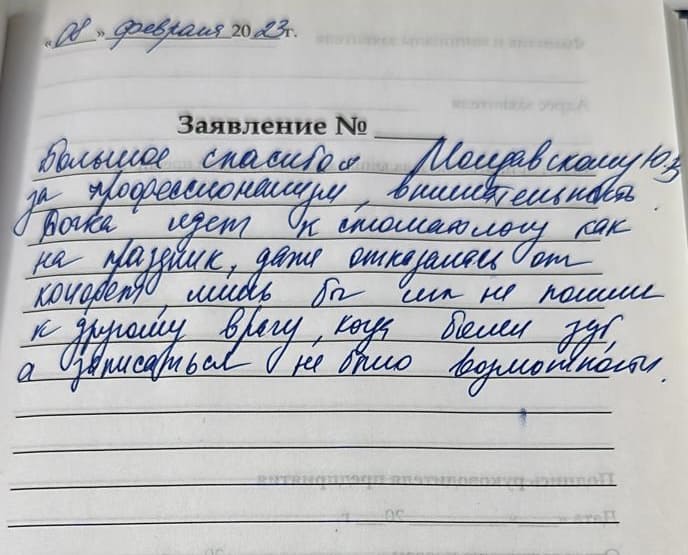 « 08 » февраля 2023г.
Заявление № ____
Большое спасибо Молдавскому Ю.З
за профессионализм, внимательность.
Дочка идет к стоматологу как
на праздник, даже отказалась от
конфет, лишь бы мы не пошли
к другому врачу, когда болел зуб,
а записаться не было возможности.